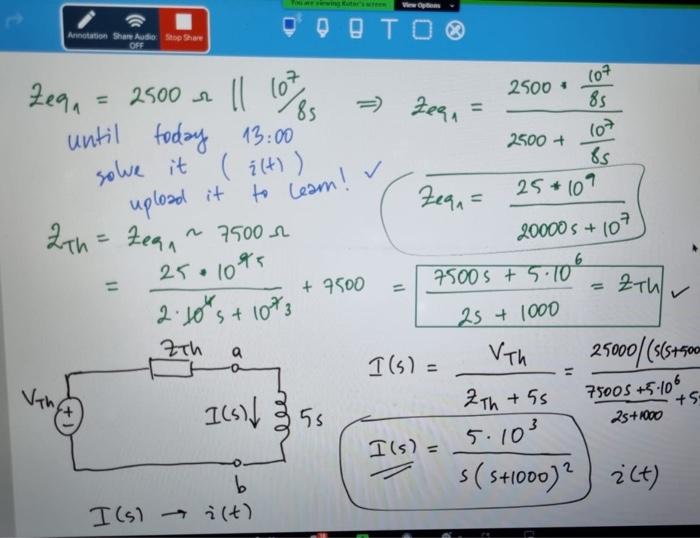 You are viewing Kutar's screen View Options
Annotation Share Audio: OFF Stop Share
T
Zeq₁ = 2500 Ω || 10⁷/8s ⇒ Zeq₁ = (2500 * 10⁷/8s) / (2500 + 10⁷/8s)
until today 13:00
solve it ( i(t) )
upload it to learn! ✓
Zeq₁ = 25 * 10⁹ / (20000s + 10⁷)
Z_Th = Zeq₁ ~ 7500 Ω
= 25 • 10⁹ 5 / (2·10⁴s + 10⁷ 3) + 7500 = (7500s + 5·10⁶) / (2s + 1000) = Z_Th ✓
Z_Th a
V_Th + -
I(s)↓ 5s
b
I(s) = V_Th / (Z_Th + 5s) = 25000/(s(s+500 / (7500s + 5·10⁶ / 2s+1000) + 5
I(s) = 5·10³ / s(s+1000)² i(t)
I(s) → i(t)